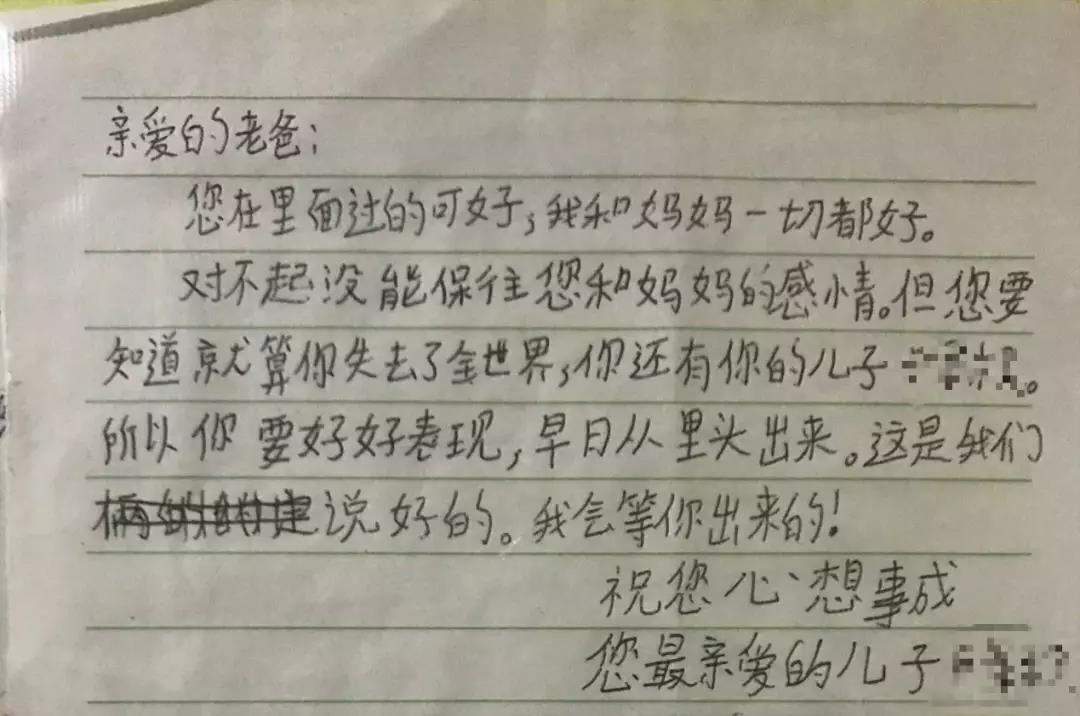 亲爱的老爸：
您在里面过的可好，我和妈妈一切都好。
对不起没能保住您和妈妈的感情。但您要
知道就算你失去了全世界，你还有你的儿子
所以你要好好表现，早日从里头出来。这是我们
说好的。我会等你出来的！
祝您心想事成
您最亲爱的儿子